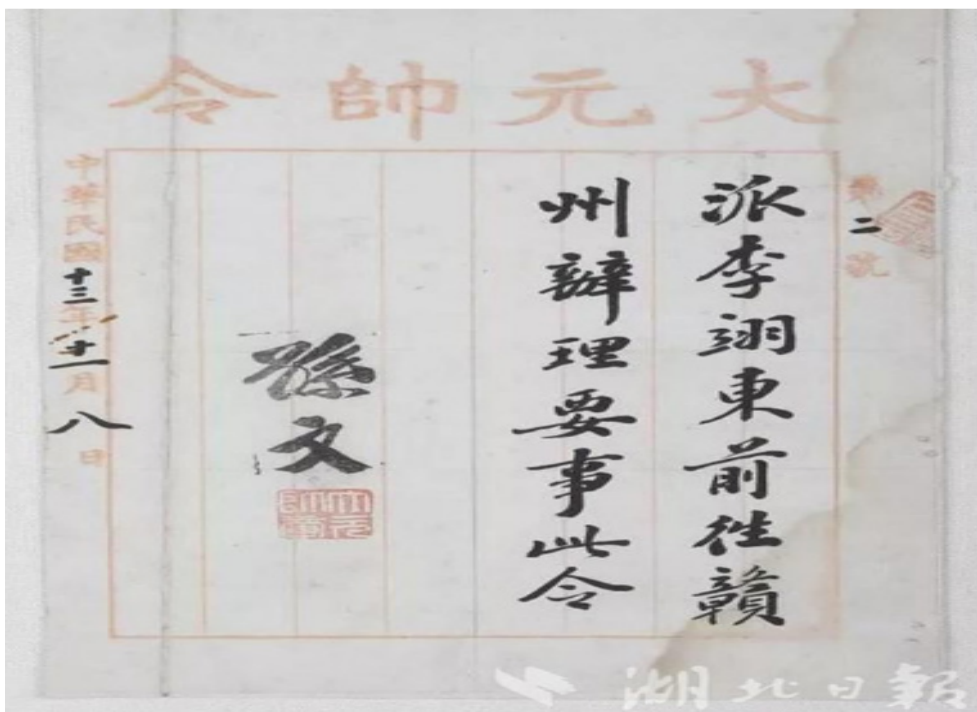 大元帥令
第二號
派李翊東前往贛
州辦理要事此令
孫文
中華民國十三年十一月八日
湖北日報